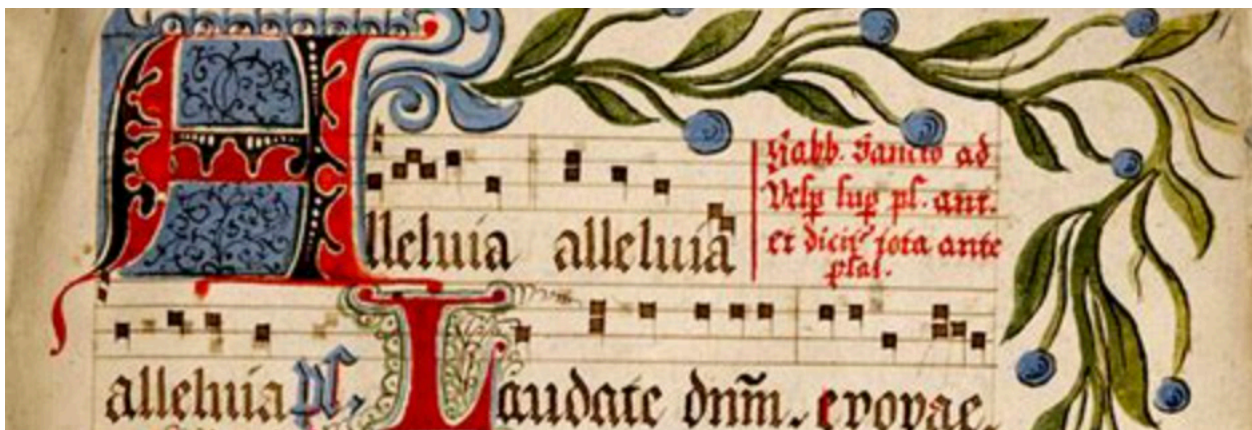 Alleluia alleluia
Sabb. Sancto ad
Vesp sup ps. ant.
et dicit² tota ante
psal.
alleluia ps, Laudate dnm̄. evovae.